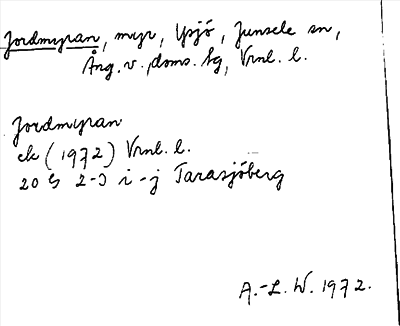 Jordmyran, myr, Ysjö, Junsele sn,
Ång. v. doms. sg, Vrnl. l.
Jordmyran
ek (1972) Vrnl. l.
20 G 2-3 i-j Tarasjöberg
A.-L. W. 1972.